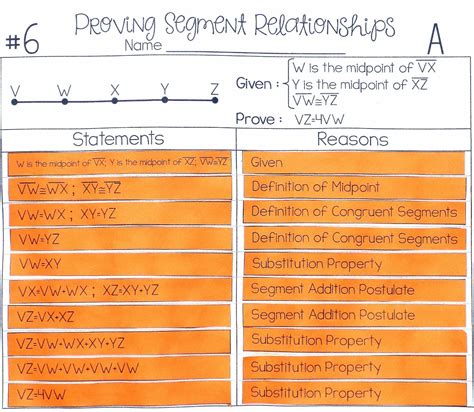 #6 Proving Segment Relationships A
Name
V W X Y Z
Given: W is the midpoint of V̅X̅
Y is the midpoint of X̅Z̅
V̅W̅≅Y̅Z̅
Prove: VZ=4VW
Statements Reasons
W is the midpoint of V̅X̅; Y is the midpoint of X̅Z̅; V̅W̅≅Y̅Z̅ Given
V̅W̅≅W̅X̅ ; X̅Y̅≅Y̅Z̅ Definition of Midpoint
VW=WX ; XY=YZ Definition of Congruent Segments
VW=YZ Definition of Congruent Segments
VW=XY Substitution Property
VX=VW+WX ; XZ=XY+YZ Segment Addition Postulate
VZ=VX+XZ Segment Addition Postulate
VZ=VW+WX+XY+YZ Substitution Property
VZ=VW+VW+VW+VW Substitution Property
VZ=4VW Substitution Property